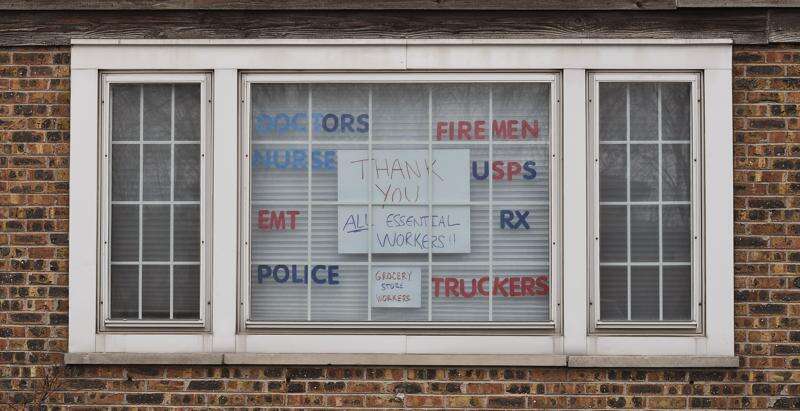 DOCTORS
FIREMEN
NURSE
USPS
THANK
YOU
ALL ESSENTIAL
WORKERS!!
EMT
RX
POLICE
GROCERY
STORE
WORKERS
TRUCKERS